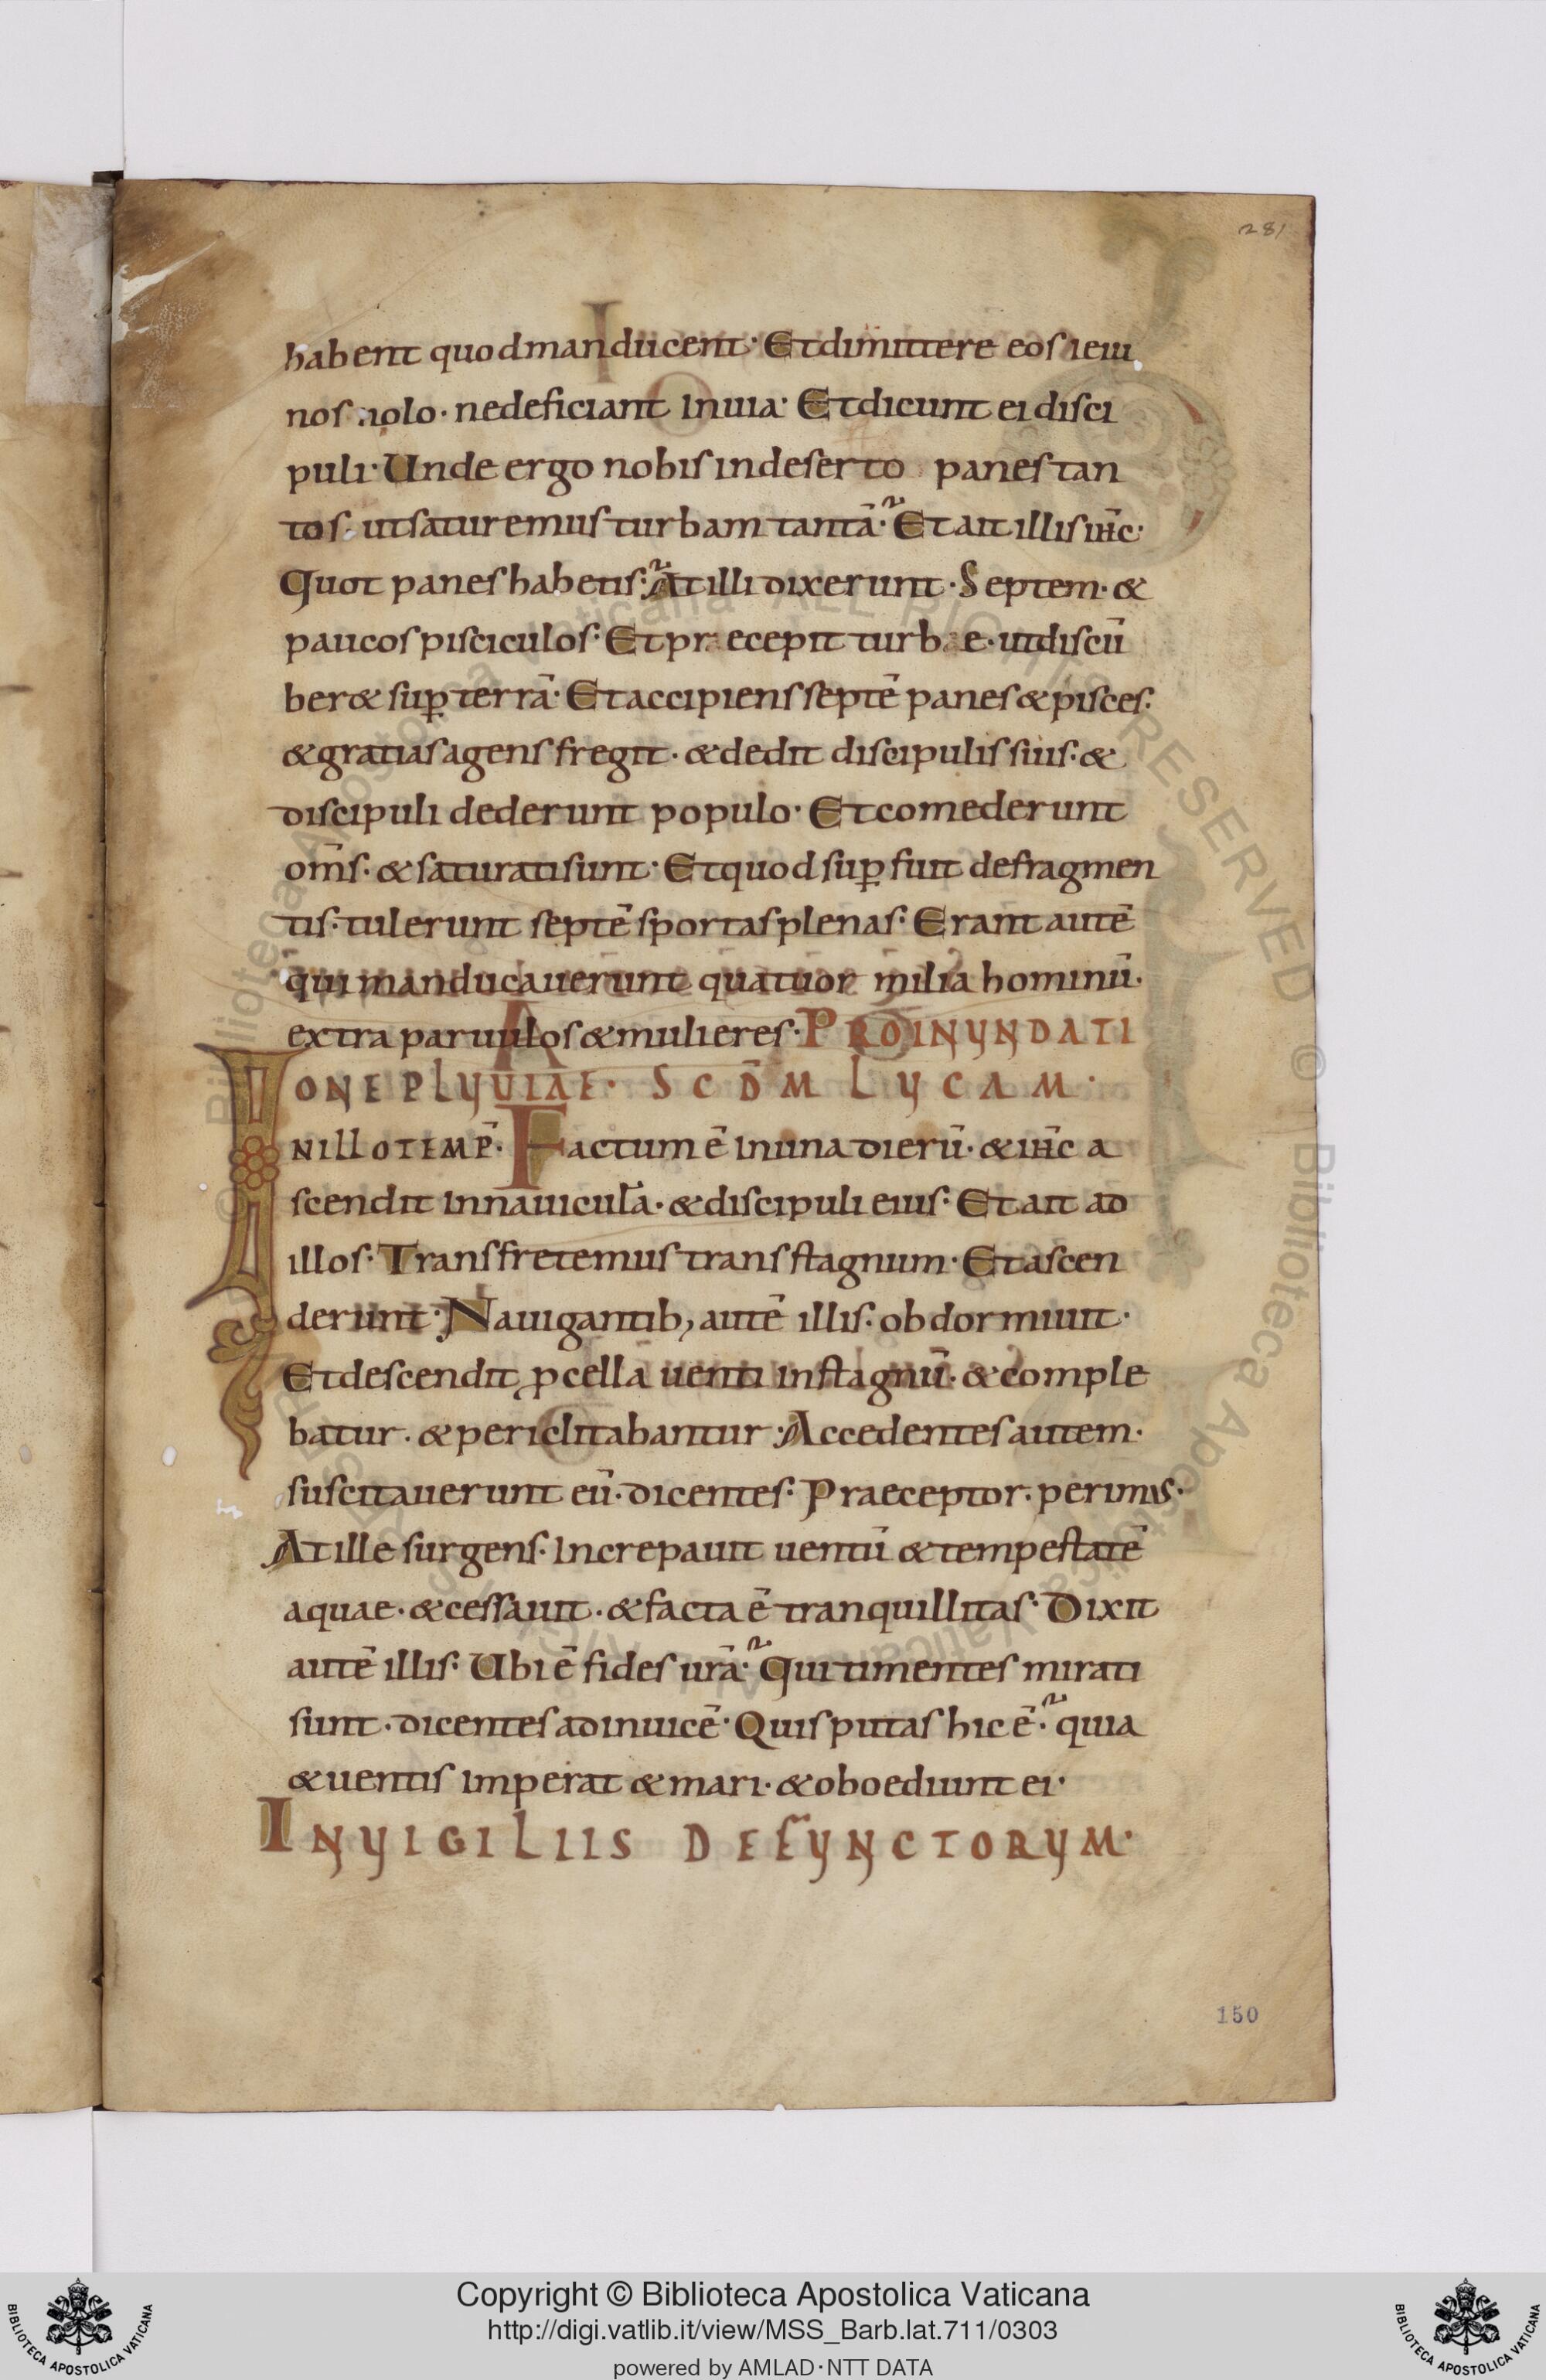 281
habent quod manducent· Et dimittere eos ieiu
nos nolo· ne deficiant in uia· Et dicunt ei disci
puli· Unde ergo nobis in deserto panes tan
tos· ut saturemus turbam tantā·? Et ait illis ihc̄·
Quot panes habetis·? At illi dixerunt· Septem· &
paucos pisciculos· Et praecepit turbae· ut discū
ber& sup̱ terrā· Et accipiens septē panes & pisces·
& gratias agens fregit· & dedit discipulis suis· &
discipuli dederunt populo· Et comederunt
om̄s· & saturati sunt· Et quod sup̱fuit de fragmen
tis· tulerunt septē sportas plenas· Erant autē
qui manducauerunt quatuor milia hominū·
extra paruulos & mulieres· PRO INUNDATI
ONE PLUUIAE· SCD̄M LUCAM·
IN ILLO TEMP̄· Factum ē in una dierū· & ihc̄ a
scendit in nauiculā· & discipuli eius· Et ait ad
illos· Transfretemus trans stagnum· Et ascen
derunt· Nauigantib; autē illis· obdormiuit·
Et descendit ꝓcella uenti in stagnū· & comple
batur· & periclitabantur· Accedentes autem·
suscitauerunt eū· dicentes· Praeceptor· perimus·
At ille surgens· increpauit uentū & tempestatē
aquae· & cessauit· & facta ē tranquillitas· Dixit
autē illis· Ubi ē fides urā·? Qui timentes mirati
sunt· dicentes ad inuicē· Quis putas hic ē·? quia
& uentis imperat & mari· & oboediunt ei·
IN UIGILIIS DEFUNCTORUM·
150
Copyright © Biblioteca Apostolica Vaticana
http://digi.vatlib.it/view/MSS_Barb.lat.711/0303
powered by AMLAD·NTT DATA
BIBLIOTECA APOSTOLICA VATICANA
BIBLIOTECA APOSTOLICA VATICANA